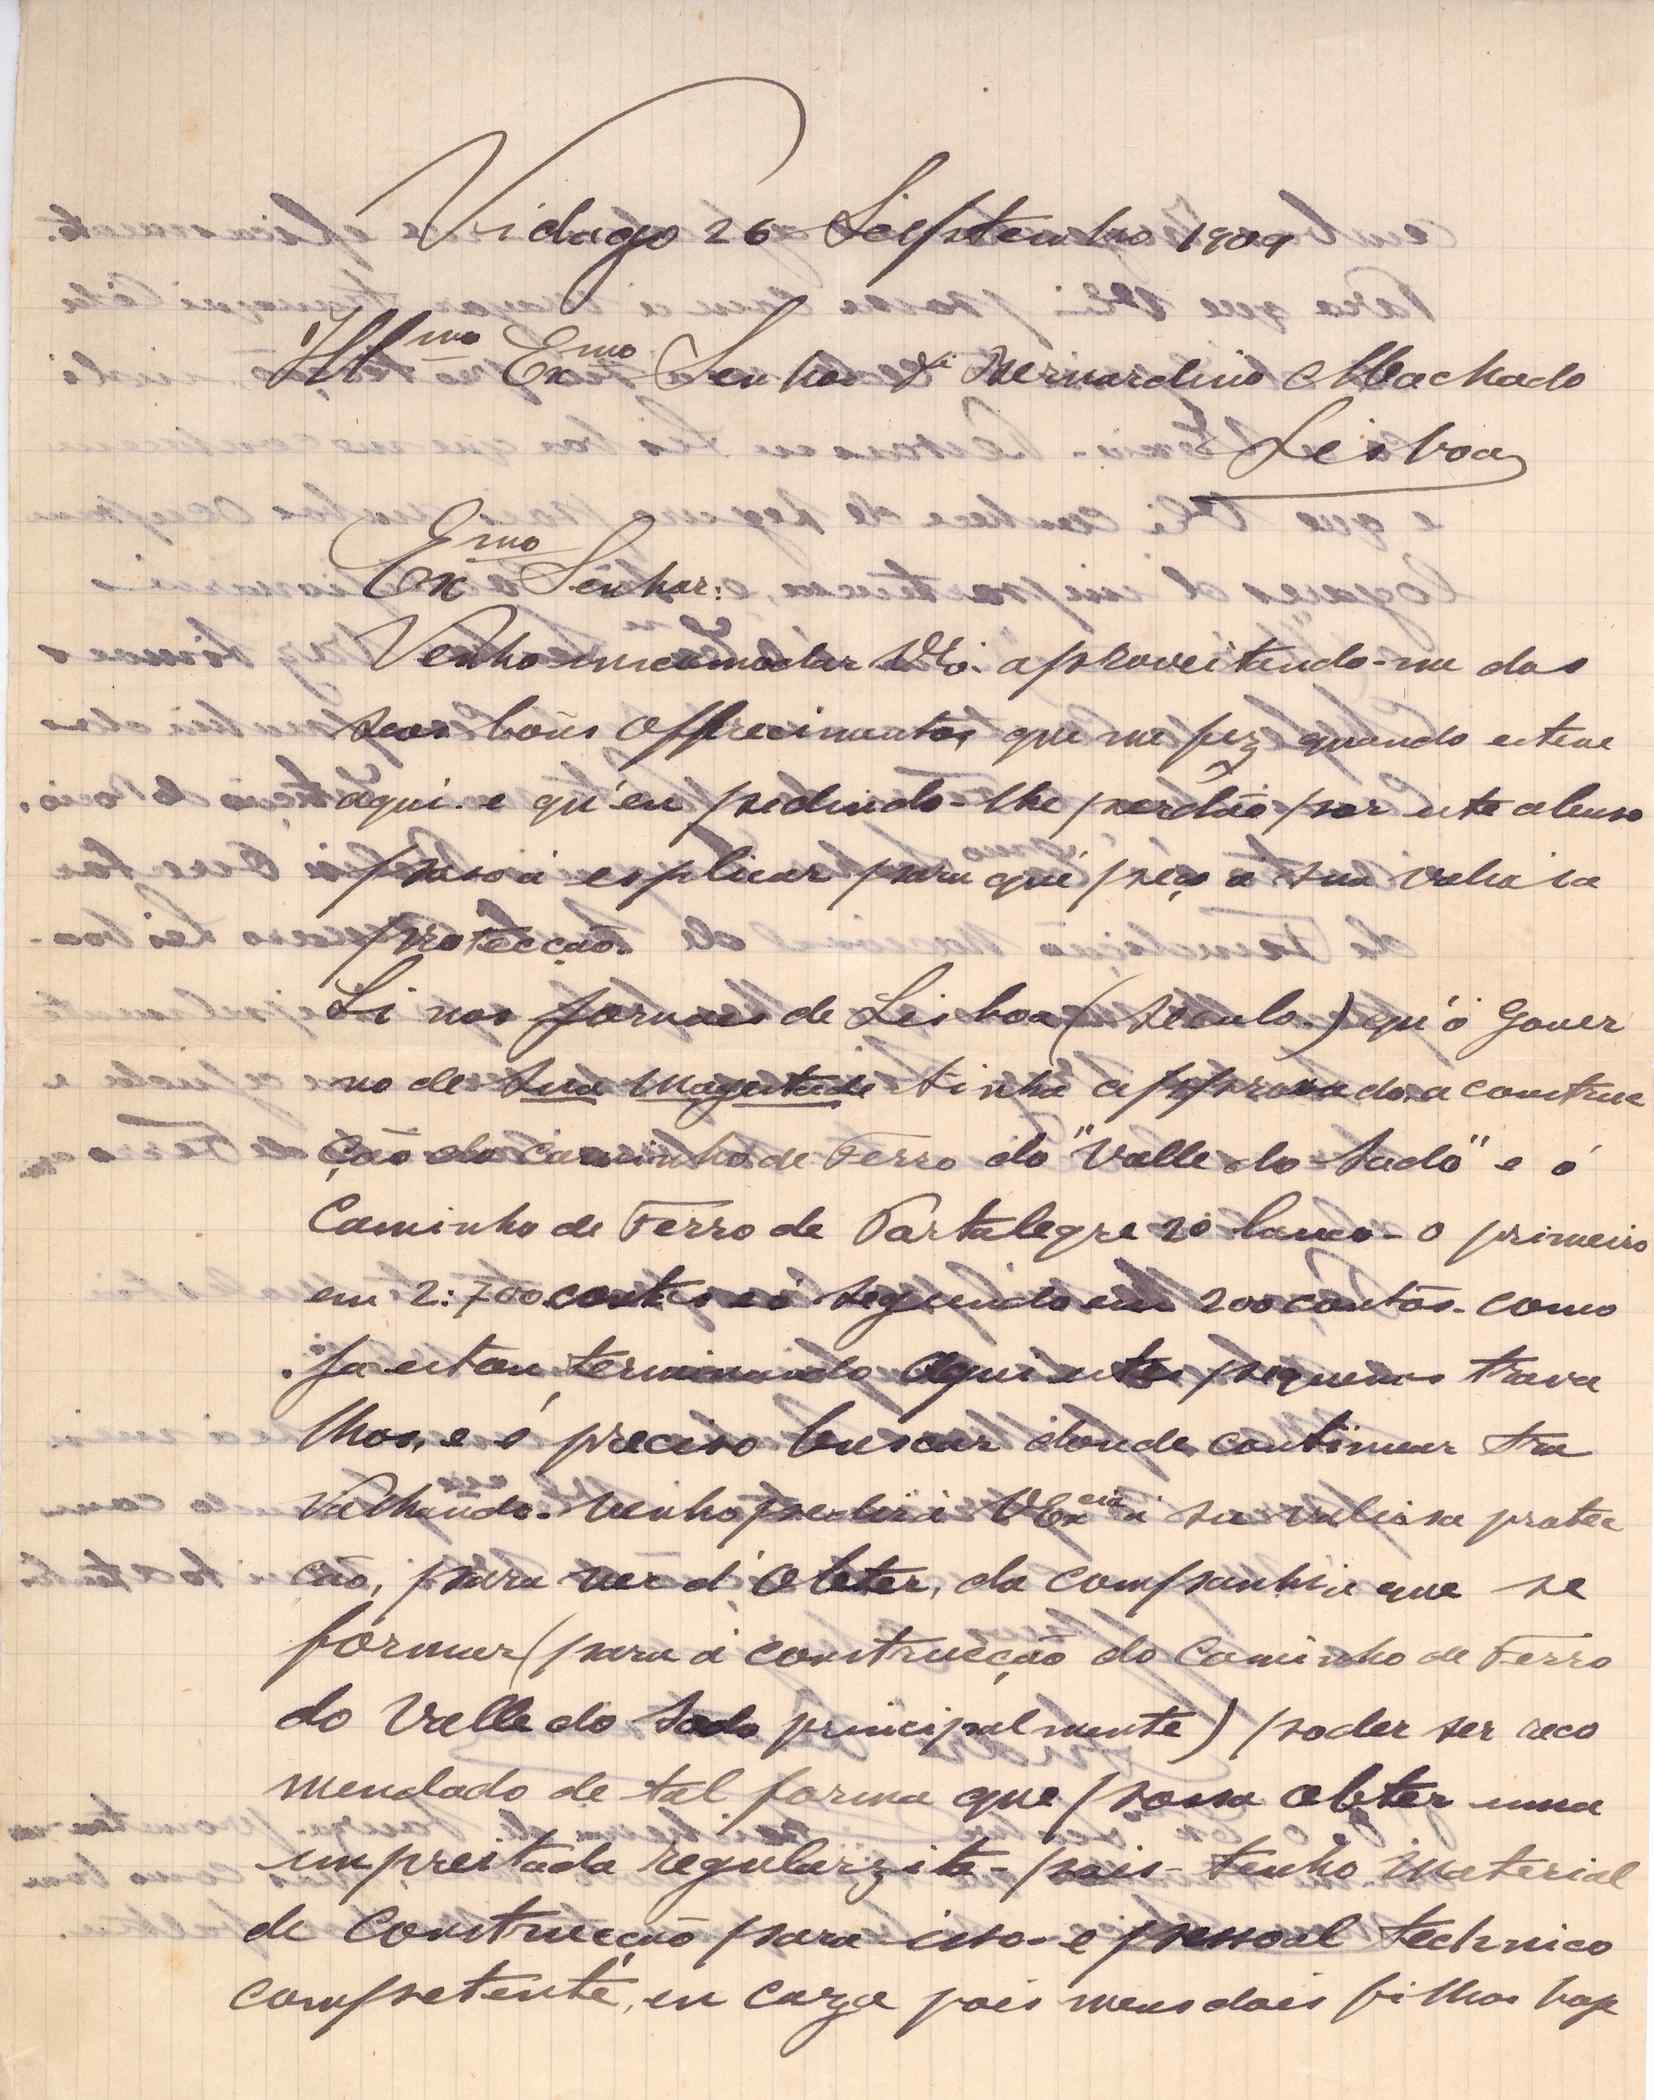 Vidago 26 Seiptembro 1909
Illmo Exmo Senhor Dr Bernardino Machado
Lisboa
Exmo Senhor:
Venho incomodar VEx. aproveitando-me dos
seos bons offrecimentos que me fez quando esteve
aqui. e qu'eu pedindo-lhe perdão por este abuso
passo á esplicar para que peço á sua valiosa
protecção.
Li nos jornaes de Lisboa (seculo.) qu'ó Gover
no de Sua Magestade tinha approvado a construc
ção do caminho de Ferro do "Valle do Sado" e ó
Caminho de Ferro de Portalegre 2º lanco- o primeiro
em 2:700 contos e ó segundo em 200 contos- como
ja estou terminando aqui estes pequenos trava
lhos, e é preciso buscar donde continuar tra
valhando- venho pedir á VExcia á sua valiosa protec
ção, para ver d'obter, da companhia que se
formar (para á construcção do Caminho de Ferro
do Valle do Sado principalmente) poder ser reco
mendado de tal forma que possa obter uma
empreitada regularzita- pois- tenho material
de construcção para isso- e pessoal technico
competente, en carga pois meus dois filhos